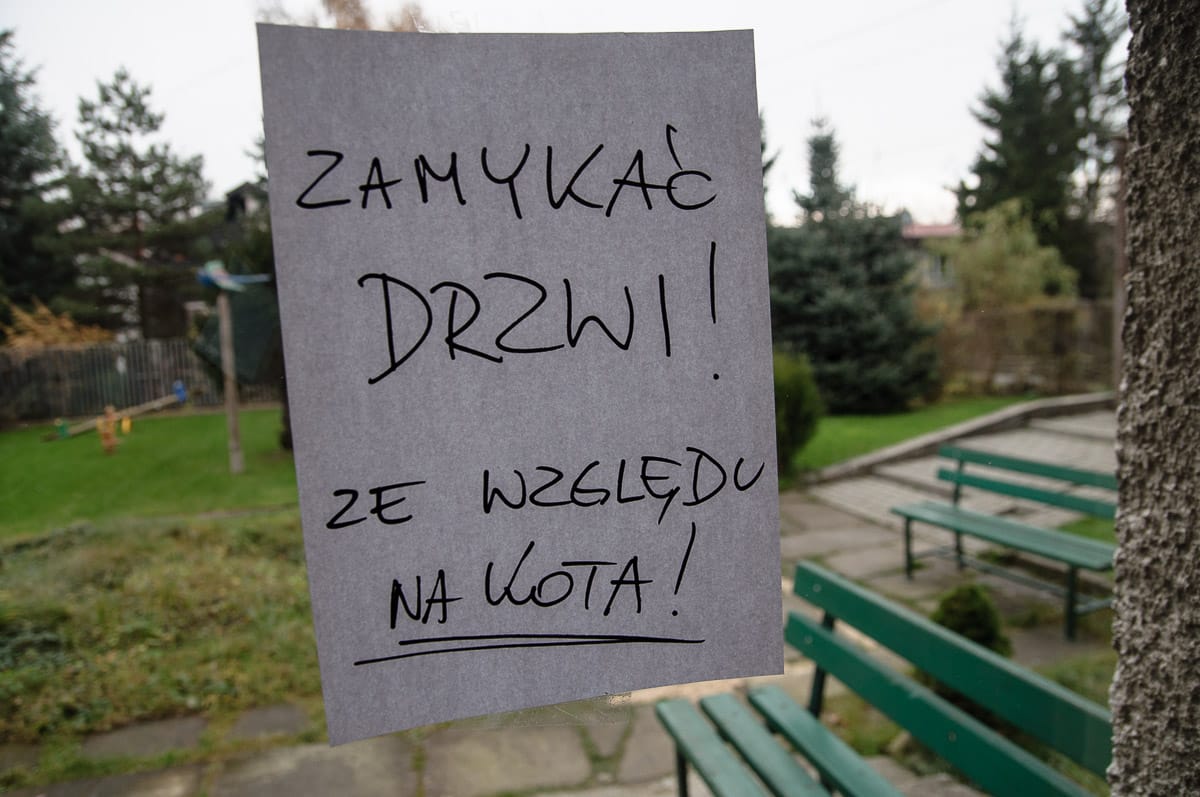 ZAMYKAĆ
DRZWI!
ZE WZGLĘDU
NA KOTA!